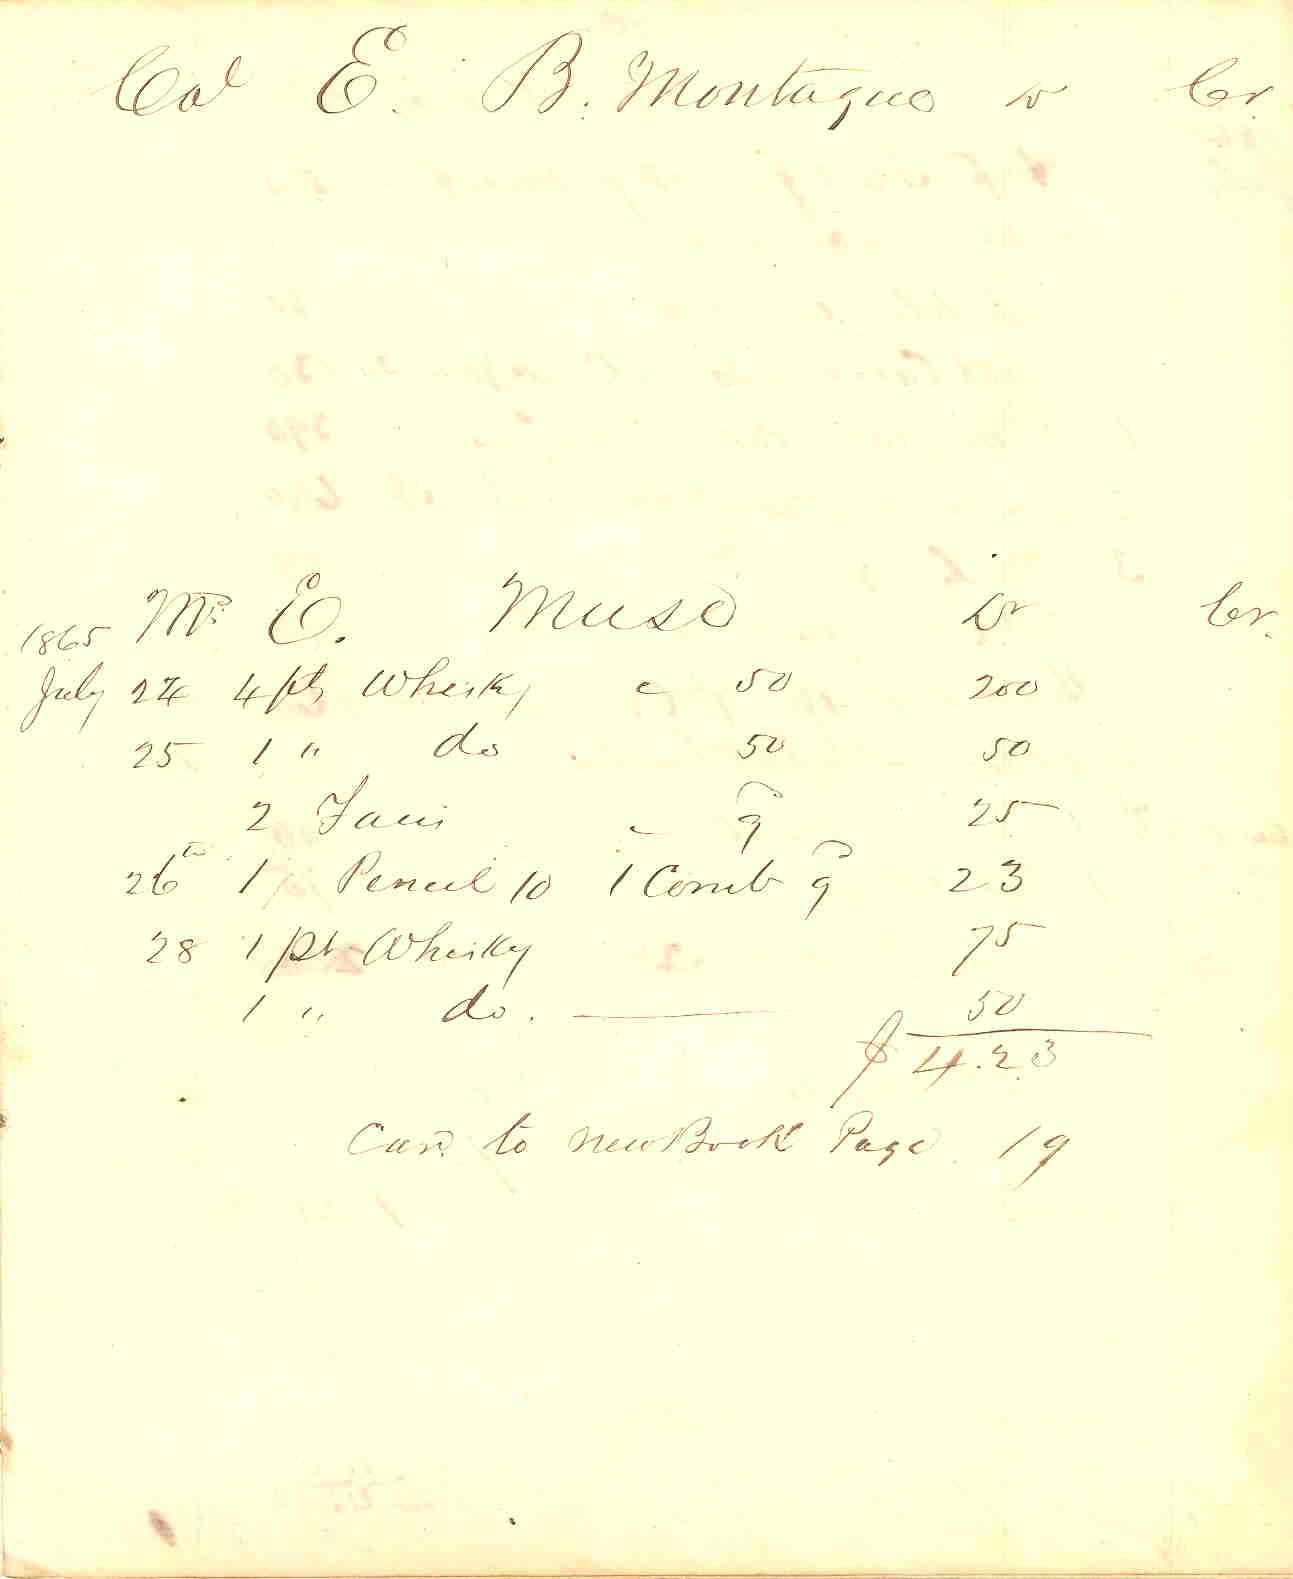 Col E. B. Montague Dr Cr.
Mr. E. Muse Dr Cr.
1865
July 24 4 pts Whisky c 50 200
25 1 " do 50 50
2 Fans 25
26th 1 Pencil 10 1 Comb 23
28 1 pt Whisky 75
1 " do. 50
$ 4.23
Card. to new Book Page 19